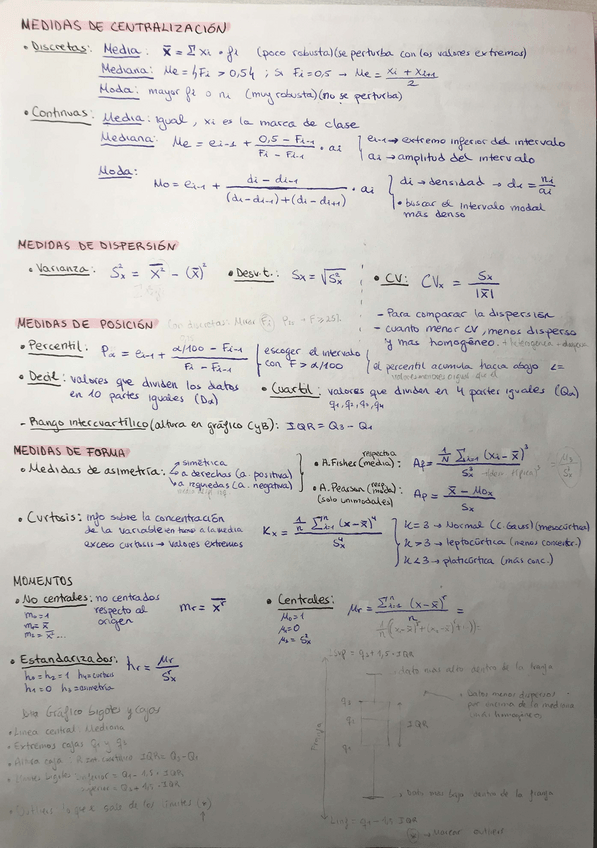 MEDIDAS DE CENTRALIZACIÓN
• Discretas: Media: x̄ = Σ xi · fi (poco robusta)(se perturba con los valores extremos)
Mediana: Me = ; Si Fi = 0,5 → Me = (xi + xi+1)/2
Moda: mayor fi o ni (muy robusta)(no se perturba)
• Continuas: Media: igual, xi es la marca de clase
Mediana: Me = ei-1 + (0,5 - Fi-1)/(Fi - Fi-1) · ai { ei-1 → extremo inferior del intervalo
ai → amplitud del intervalo
Moda: Mo = ei-1 + (di - di-1)/((di - di-1) + (di - di+1)) · ai { di → densidad → di = ni/ai
• buscar el intervalo modal
más denso
MEDIDAS DE DISPERSIÓN
• Varianza: S²x = x̄² - (x̄)² • Desv.t.: Sx = √S²x • CV: CVx = Sx/|x̄|
- Para comparar la dispersión
- cuanto menor CV, menos disperso
y mas homogéneo.
MEDIDAS DE POSICIÓN
• Percentil: Pα = ei-1 + (α/100 - Fi-1)/(Fi - Fi-1) { escoger el intervalo
con F > α/100 { el percentil acumula hacia abajo
• Decil: valores que dividen los datos
en 10 partes iguales (Dα)
• Cuartil: valores que dividen en 4 partes iguales (Qα)
q1, q2, q3, q4
- Rango intercuartílico (altura en gráfico CyB): IQR = Q3 - Q1
MEDIDAS DE FORMA
• Medidas de asimetría: simétrica
a derechas (a. positiva)
a izquiedas (a. negativa)
• A. Fisher (respecto a media): Af = (1/N Σ (xi - x̄)³)/S³x
• A. Pearson (resp. moda) (solo unimodales) Ap = (x̄ - Mox)/Sx
• Curtosis: info sobre la concentración
de la variable en torno a la media
exceso curtosis → valores extremos
Kx = (1/n Σ (x - x̄)⁴)/S⁴x
k = 3 → Normal (C. Gaus) (mesocúrtica)
k > 3 → leptocúrtica (menos concentr.)
k < 3 → platicúrtica (más conc.)
MOMENTOS
• No centrales: no centrados
respecto al
origen
m0 = 1
m1 = x̄
m2 = x̄² ...
mr = x̄ʳ
• Centrales: μr = (Σ (x - x̄)ʳ)/n =
μ0 = 1
μ1 = 0
μ2 = S²x
• Estandarizados: hr = μr/Sʳx
h0 = h2 = 1 h4 = curtosis
h1 = 0 h3 = asimetría
Gráfico bigotes y cajas
• Línea central: Mediana
• Extremos cajas q1 y q3
IQR = Q3 - Q1
Q1 - 1,5 · IQR
Q3 + 1,5 · IQR
dato más alto dentro de la franja
q3
q1
IQR
Franja
dato más bajo dentro de la franja
Linf = q1 - 1,5 · IQR
→ Marcar outlier